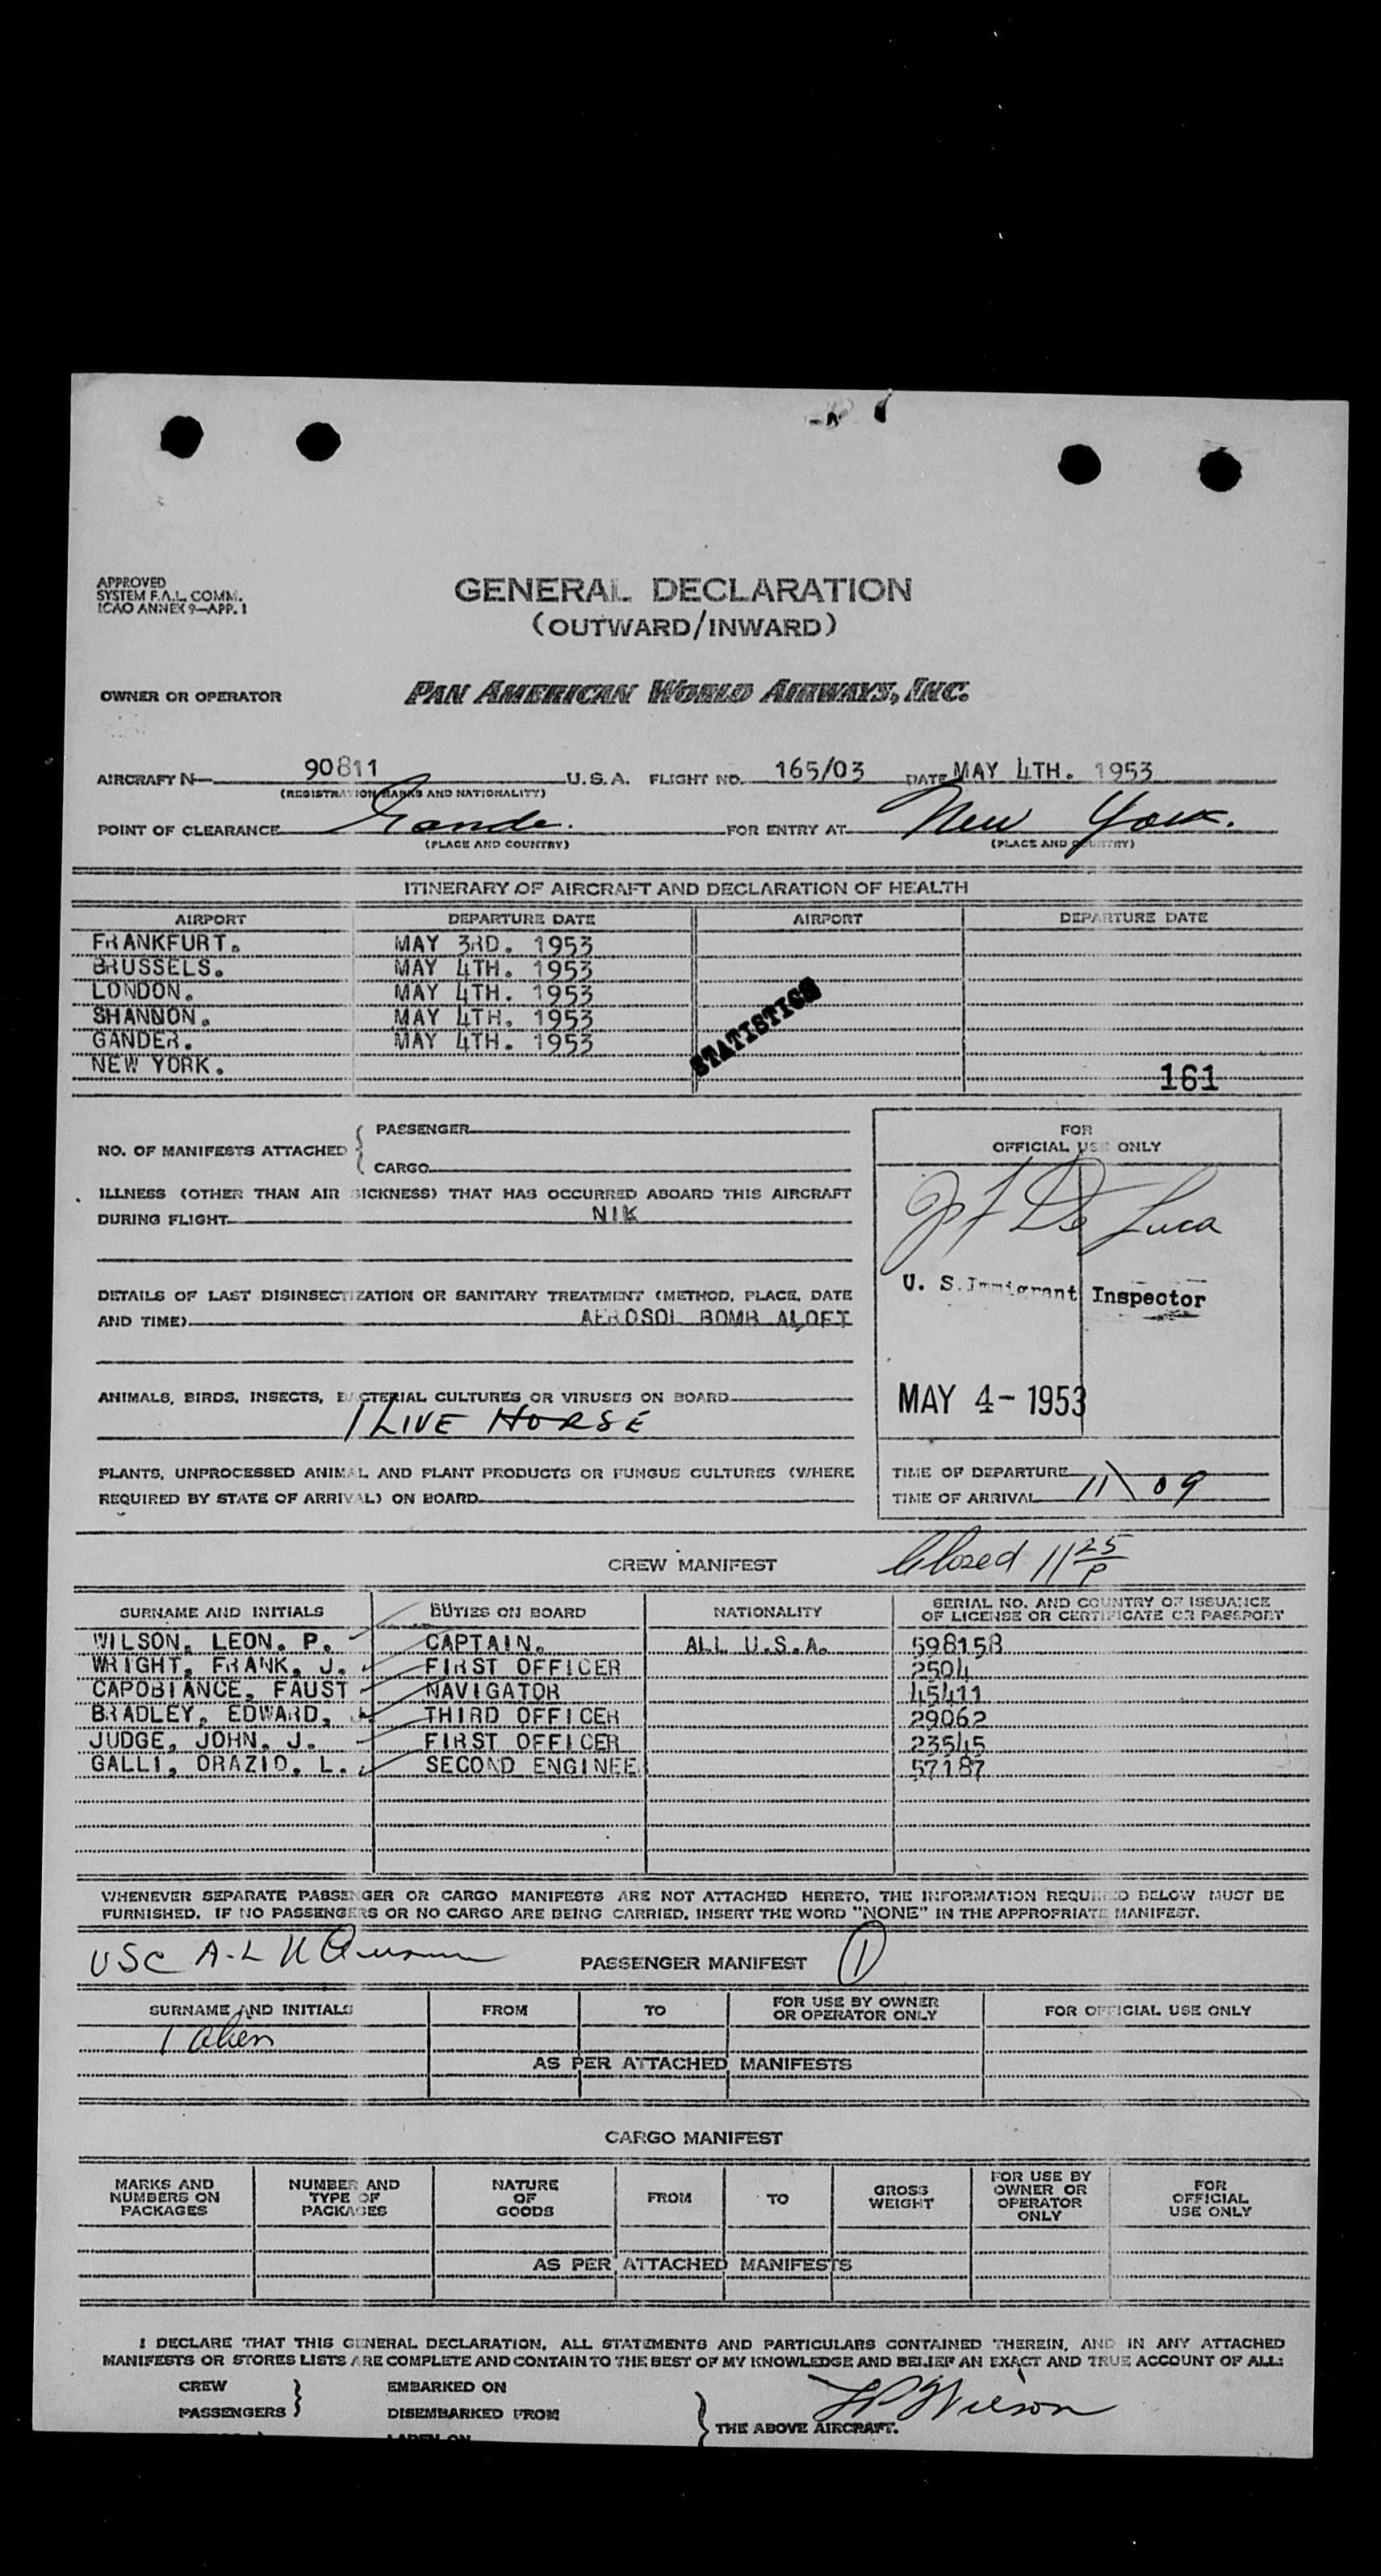 APPROVED
SYSTEM F.A.L. COMM.
ICAO ANNEX 9—APP. 1
GENERAL DECLARATION
(OUTWARD/INWARD)
OWNER OR OPERATOR PAN AMERICAN WORLD AIRWAYS, INC.
AIRCRAFT N— 90811 U.S.A. FLIGHT NO. 165/03 DATE MAY 4TH. 1953
(REGISTRATION MARKS AND NATIONALITY)
POINT OF CLEARANCE FOR ENTRY AT New York.
(PLACE AND COUNTRY) (PLACE AND COUNTRY)
ITINERARY OF AIRCRAFT AND DECLARATION OF HEALTH
AIRPORT DEPARTURE DATE AIRPORT DEPARTURE DATE
FRANKFURT. MAY 3RD. 1953
BRUSSELS. MAY 4TH. 1953
LONDON. MAY 4TH. 1953
SHANNON. MAY 4TH. 1953
GANDER. MAY 4TH. 1953
NEW YORK.
STATISTICS
161
NO. OF MANIFESTS ATTACHED
PASSENGER
CARGO
ILLNESS (OTHER THAN AIR SICKNESS) THAT HAS OCCURRED ABOARD THIS AIRCRAFT
DURING FLIGHT NIK
DETAILS OF LAST DISINSECTIZATION OR SANITARY TREATMENT (METHOD, PLACE, DATE
AND TIME) AEROSOL BOMB ALOFT
ANIMALS, BIRDS, INSECTS, BACTERIAL CULTURES OR VIRUSES ON BOARD
1 LIVE HORSE
PLANTS, UNPROCESSED ANIMAL AND PLANT PRODUCTS OR FUNGUS CULTURES (WHERE
REQUIRED BY STATE OF ARRIVAL) ON BOARD
FOR
OFFICIAL USE ONLY
J F De Luca
U. S. Immigrant Inspector
MAY 4 - 1953
TIME OF DEPARTURE
TIME OF ARRIVAL 11 09
CREW MANIFEST Closed 11 25 P
SURNAME AND INITIALS DUTIES ON BOARD NATIONALITY SERIAL NO. AND COUNTRY OF ISSUANCE
OF LICENSE OR CERTIFICATE OR PASSPORT
WILSON, LEON. P. CAPTAIN. ALL U.S.A. 598158
WRIGHT, FRANK, J. FIRST OFFICER 2504
CAPOBIANCE, FAUST NAVIGATOR 45411
BRADLEY, EDWARD, THIRD OFFICER 29062
JUDGE, JOHN. J. FIRST OFFICER 23545
GALLI, ORAZIO, L. SECOND ENGINEE 57187
WHENEVER SEPARATE PASSENGER OR CARGO MANIFESTS ARE NOT ATTACHED HERETO, THE INFORMATION REQUIRED BELOW MUST BE
FURNISHED. IF NO PASSENGERS OR NO CARGO ARE BEING CARRIED, INSERT THE WORD "NONE" IN THE APPROPRIATE MANIFEST.
USC A-L PASSENGER MANIFEST 1
SURNAME AND INITIALS FROM TO FOR USE BY OWNER
OR OPERATOR ONLY FOR OFFICIAL USE ONLY
1 alien
AS PER ATTACHED MANIFESTS
CARGO MANIFEST
MARKS AND
NUMBERS ON
PACKAGES
NUMBER AND
TYPE OF
PACKAGES
NATURE
OF
GOODS
FROM
TO
GROSS
WEIGHT
FOR USE BY
OWNER OR
OPERATOR
ONLY
FOR
OFFICIAL
USE ONLY
AS PER ATTACHED MANIFESTS
I DECLARE THAT THIS GENERAL DECLARATION, ALL STATEMENTS AND PARTICULARS CONTAINED THEREIN, AND IN ANY ATTACHED
MANIFESTS OR STORES LISTS ARE COMPLETE AND CONTAIN TO THE BEST OF MY KNOWLEDGE AND BELIEF AN EXACT AND TRUE ACCOUNT OF ALL:
CREW EMBARKED ON
PASSENGERS DISEMBARKED FROM
LADEN ON
THE ABOVE AIRCRAFT.
LP Wilson